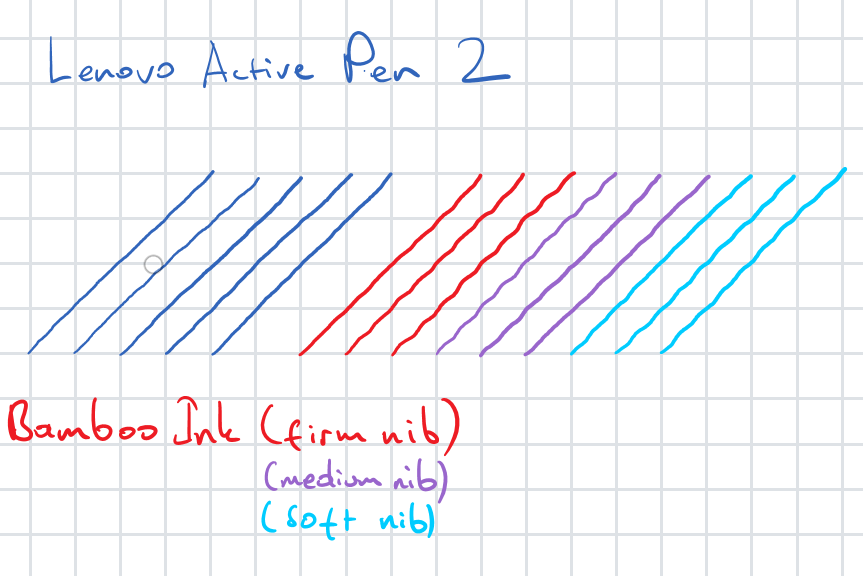 Lenovo Active Pen 2
Bamboo Ink (firm nib)
(medium nib)
(soft nib)